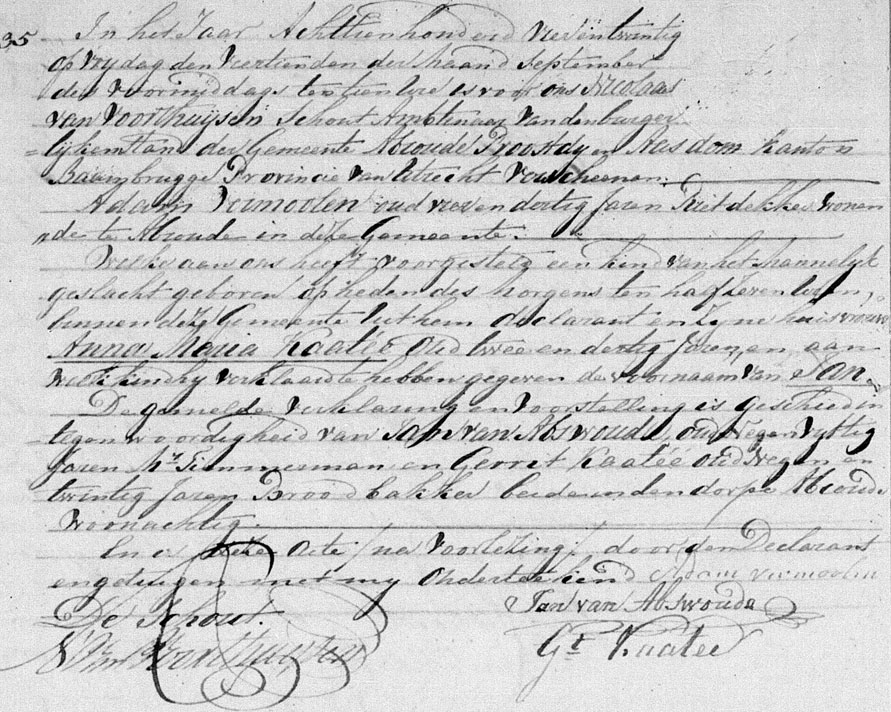 35 In het Jaar Achttienhonderd vierentwintig
op Vrydag den veertienden der maand September
des voormiddags ten tien ure is voor ons Nicolaas
van Voorthuijsen Schout Ambtenaar van den burger
lijken stand der Gemeente Abcoude Proostdy en Aasdom kanton
Baambrugge Provincie van Utrecht Verscheenen
Adam Vermoolen oud vier en dertig Jaren Rietdekker wonen
de te Abcoude in deze Gemeente.
Welke aan ons heeft voorgesteld een kind van het mannelijk
geslacht geboren op heden des morgens ten half zeven uren
binnen deze Gemeente uit hem declarant en zyne huisvrouw
Anna Maria Kaatee oud twee en dertig Jaren, en aan
welk kind hy verklaarde te hebben gegeven de voornaam van Jan.
De gemelde verklaring en voorstelling is geschied in
tegenwoordigheid van Jan van Abswoude, oud negen vyftig
Jaren Mr. Timmerman en Gerret Kaatéé oud negen en
twintig Jaren Broodbakker beide in den dorpe Abcoude
Woonachtig.
En is deze Acte /na voorlezing/ door den Declarant
en getuigen met my onderteekend Adam vermoolen
De Schout. Jan van Abswoude
N Van Voorthuijsen Gt Kaatee